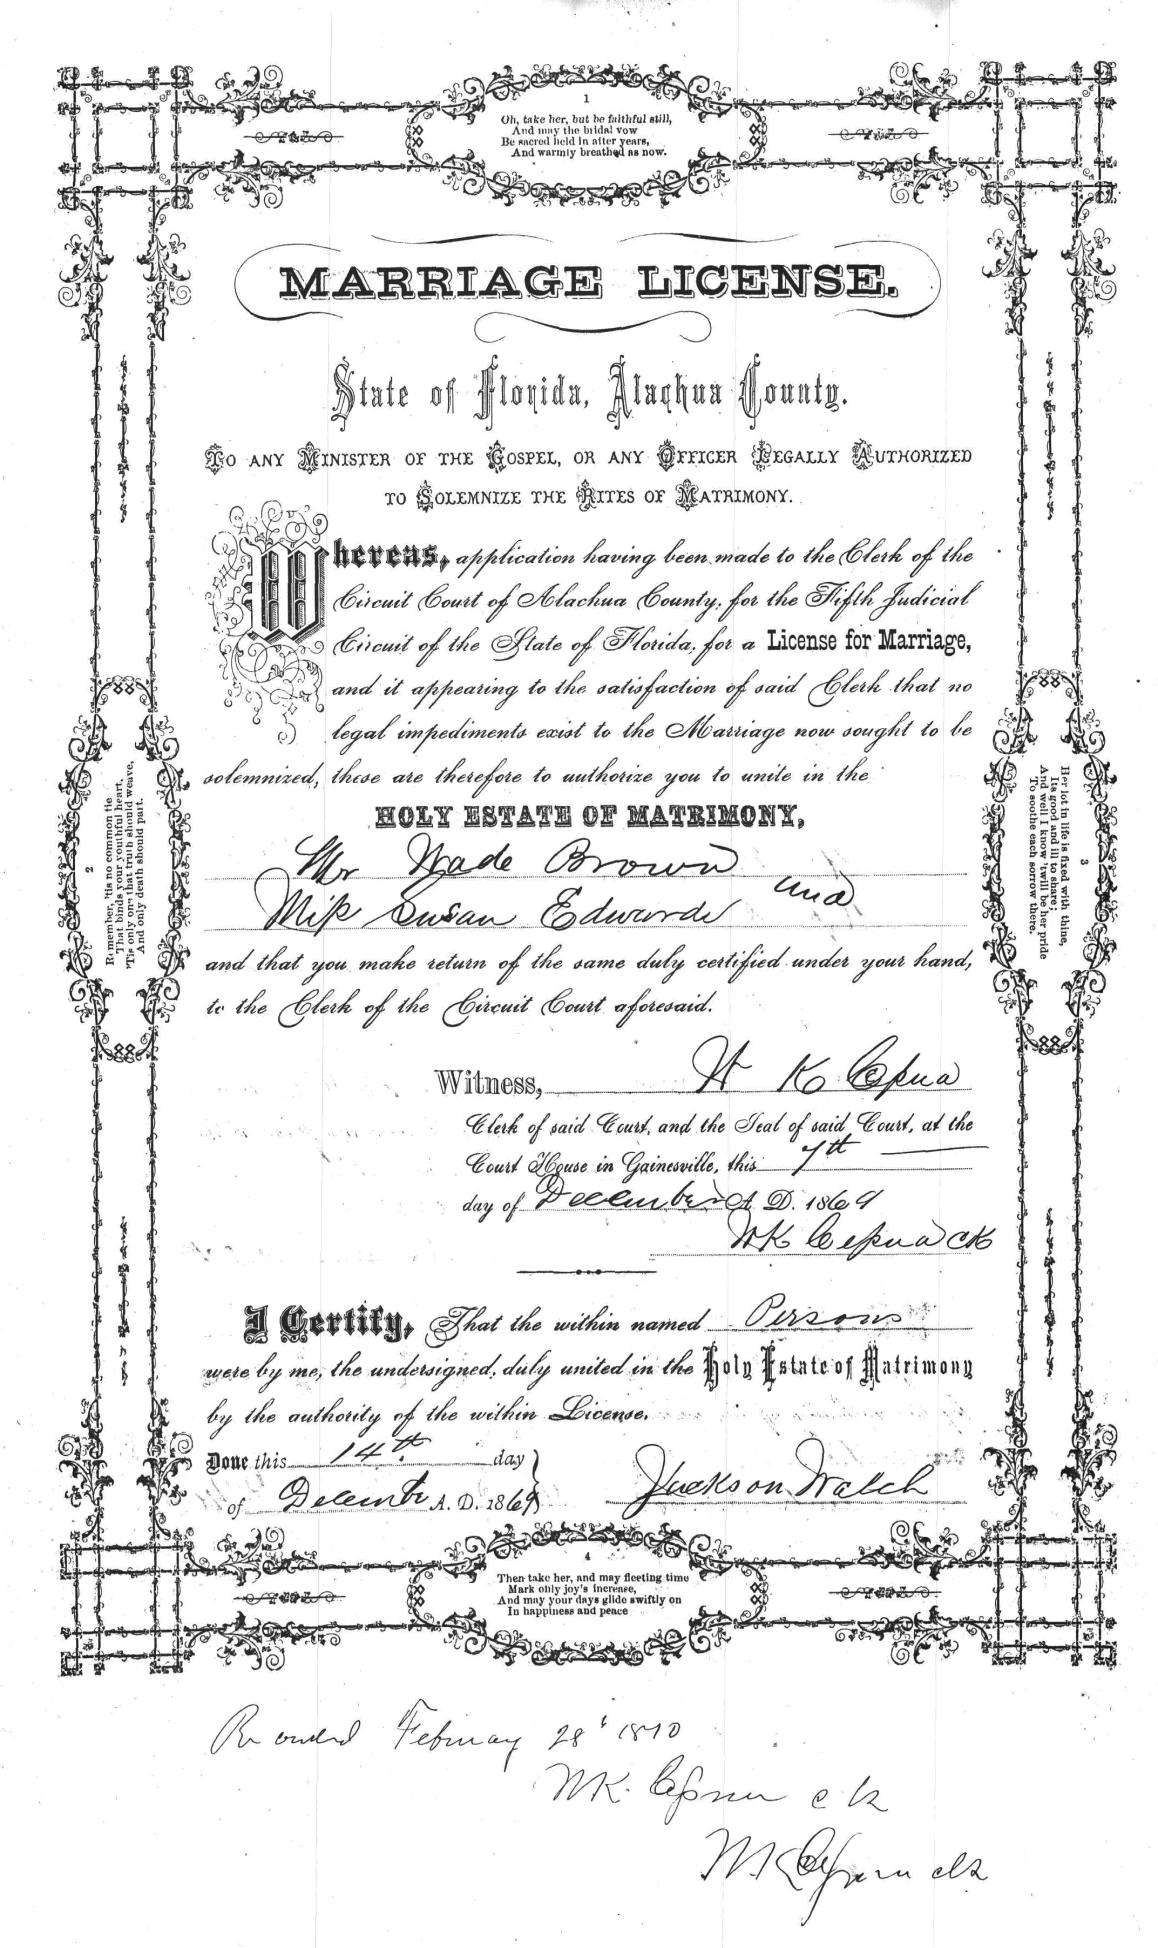 1
Oh, take her, but be faithful still,
And may the bridal vow
Be sacred held in after years,
And warmly breathed as now.
MARRIAGE LICENSE.
State of Florida, Alachua County.
TO ANY MINISTER OF THE GOSPEL, OR ANY OFFICER LEGALLY AUTHORIZED
TO SOLEMNIZE THE RITES OF MATRIMONY.
Whereas, application having been made to the Clerk of the
Circuit Court of Alachua County, for the Fifth Judicial
Circuit of the State of Florida, for a License for Marriage,
and it appearing to the satisfaction of said Clerk that no
legal impediments exist to the Marriage now sought to be
solemnized, these are therefore to authorize you to unite in the
HOLY ESTATE OF MATRIMONY,
Mr Wade Brown and
Miss Susan Edwards
and that you make return of the same duly certified under your hand,
to the Clerk of the Circuit Court aforesaid.
2
Remember, 'tis no common tie
That binds your youthful heart,
'Tis only one that truth should weave,
And only death should part.
3
Her lot in life is fixed with thine,
Its good and ill to share;
And well I know 'twill be her pride
To soothe each sorrow there.
Witness, W K Cessna
Clerk of said Court, and the Seal of said Court, at the
Court House in Gainesville, this 7th
day of December A. D. 1869
WK Cessna Clk
I Certify, That the within named Persons
were by me, the undersigned, duly united in the Holy Estate of Matrimony
by the authority of the within License.
Done this 14th. day
of December A. D. 1869
Jackson Walch
4
Then take her, and may fleeting time
Mark only joy's increase,
And may your days glide swiftly on
In happiness and peace
Recorded February 28 1870
WK. Cessna clk
WK Cessna clk